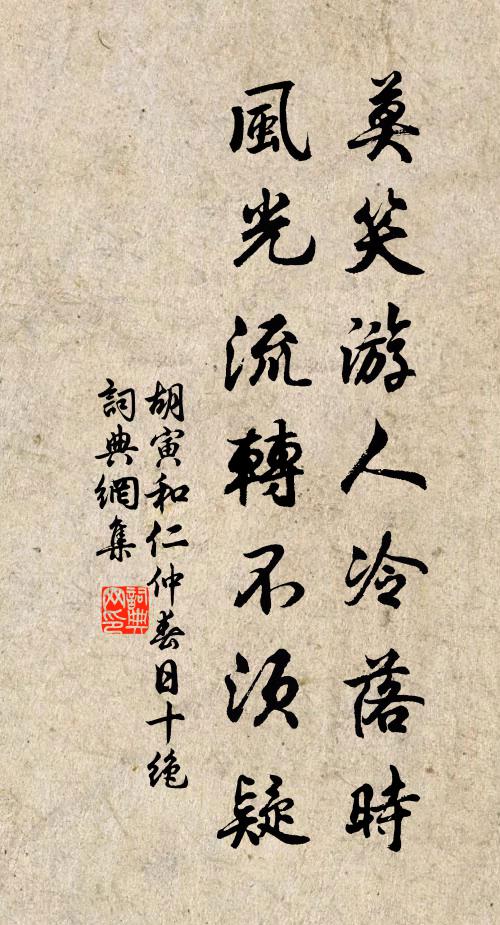 莫笑游人冷落時
風光流轉不須疑
胡寅和仁仲春日十絶
詞典網集
詞典
网印